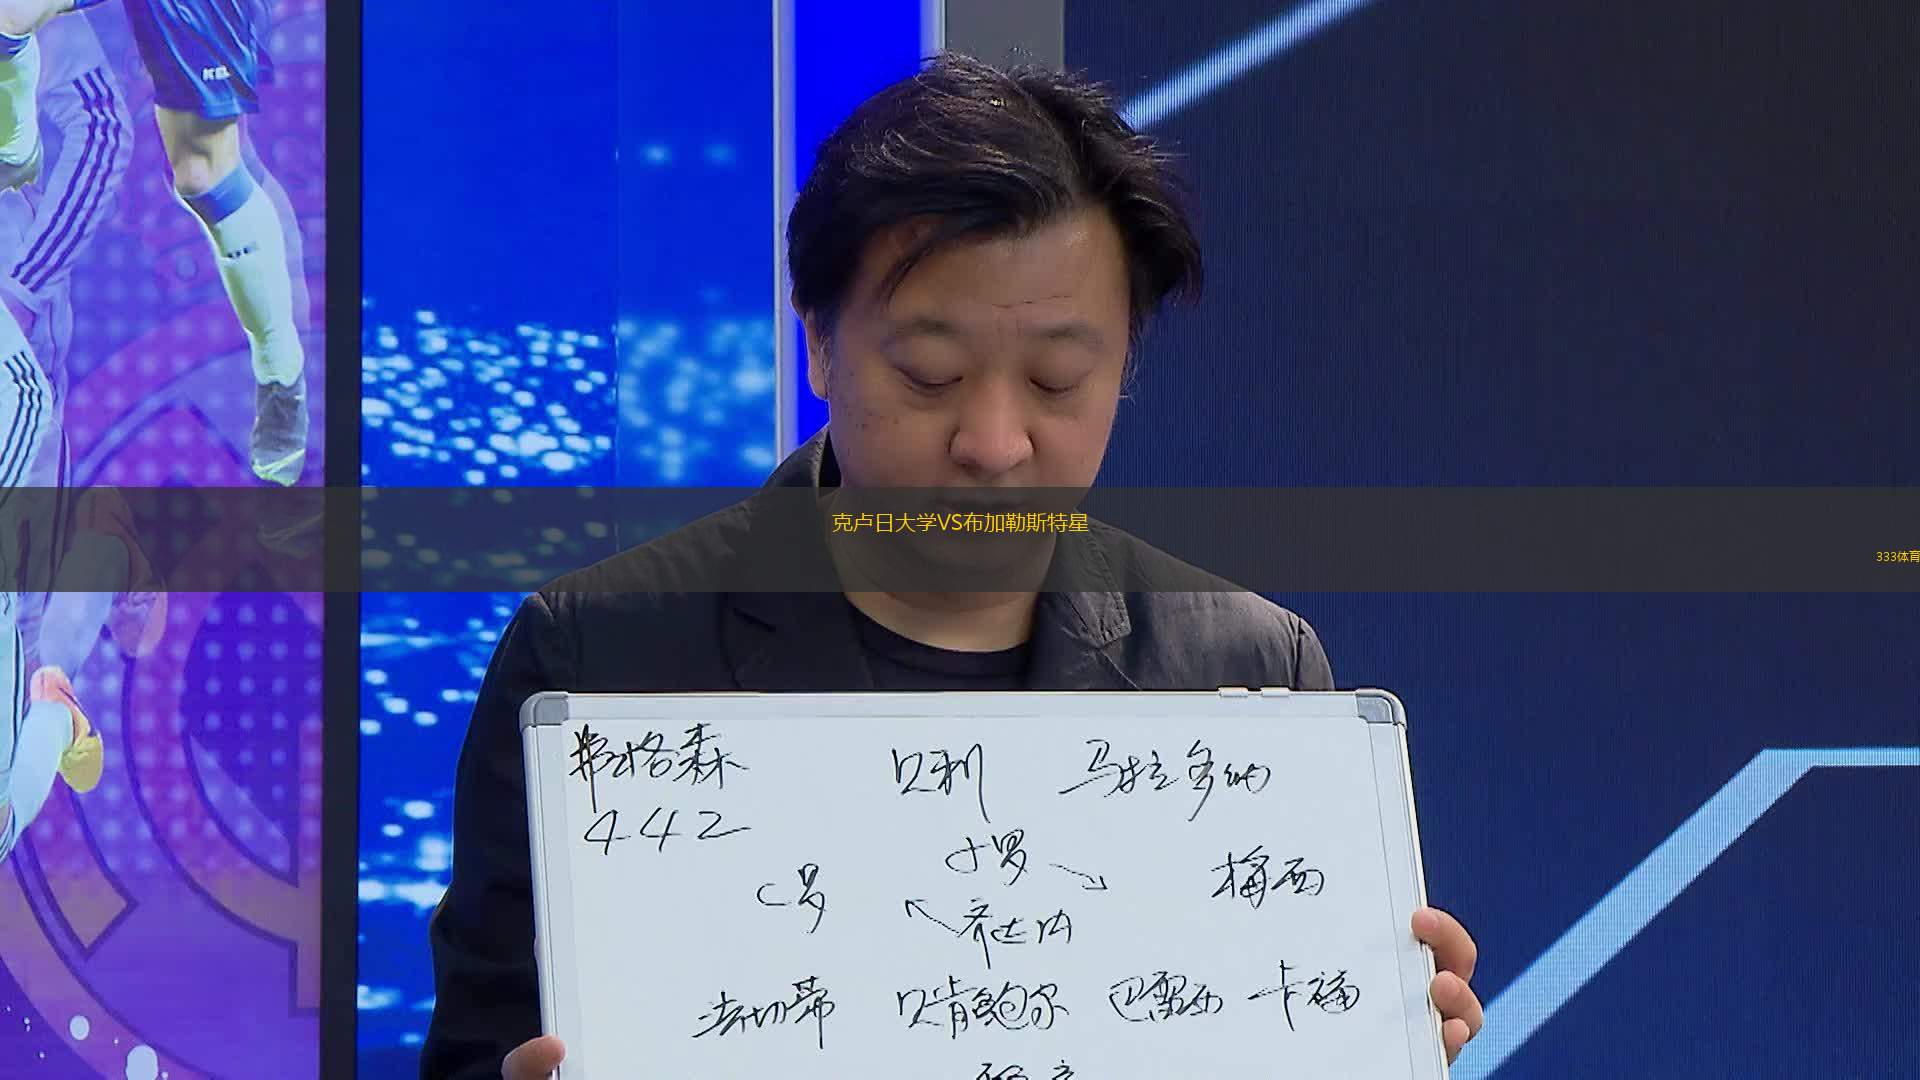 克卢日大学VS布加勒斯特星
333体育
弗格森 贝利 马拉多纳
442
小罗
C罗 梅西
齐达内
法切蒂 贝肯鲍尔 巴雷西 卡福